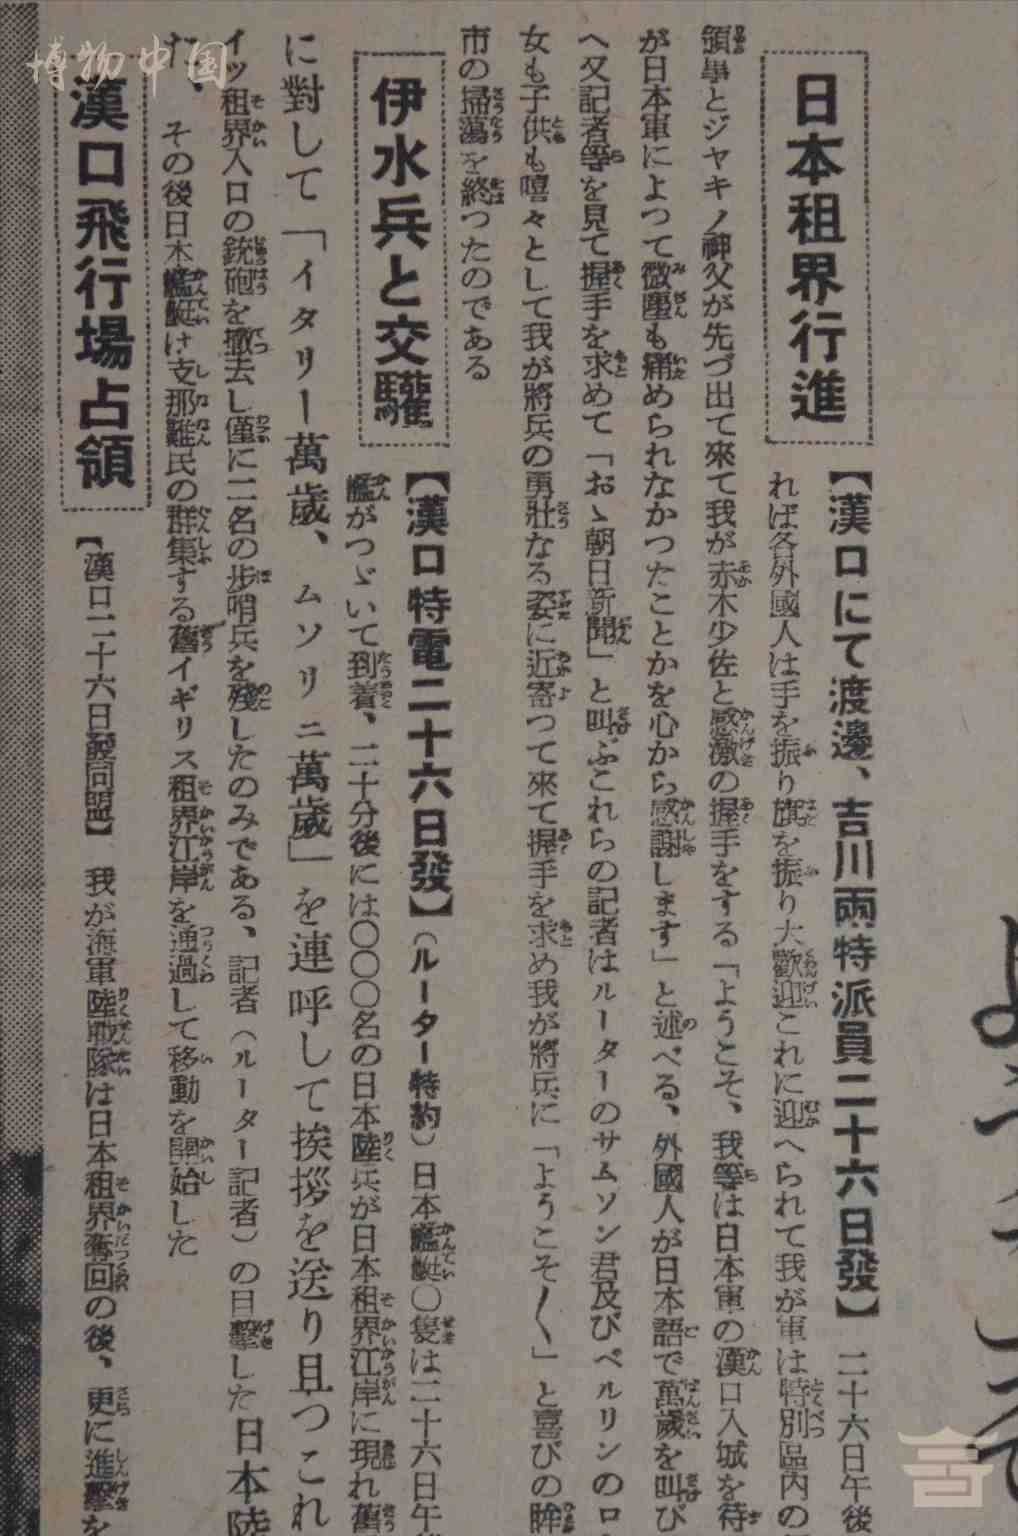 博物中国
日本租界行進
【漢口にて渡邊、吉川兩特派員二十六日發】二十六日午後
れば各外國人は手を振り旗を振り大歡迎これに迎へられて我が軍は特別區内の
領事とジヤキノ神父が先づ出て來て我が赤木少佐と感激の握手をする「ようこそ、我等は日本軍の漢口入城を待
が日本軍によつて微塵も痛められなかつたことかを心から感謝します」と述べる、外國人が日本語で萬歲を叫び
へ又記者等を見て握手を求めて「おゝ朝日新聞」と叫ぶこれらの記者はルーターのサムソン君及びベルリンのロ
女も子供も嘻々として我が將兵の勇壯なる姿に近寄つて來て握手を求め我が將兵に「ようこそ〱」と喜びの眸
市の掃蕩を終つたのである
伊水兵と交驩
【漢口特電二十六日發】（ルーター特約）日本艦艇〇隻は二十六日午
艦がつゞいて到着、二十分後には〇〇〇名の日本陸兵が日本租界江岸に現れ舊
に對して「イタリー萬歲、ムソリニ萬歲」を連呼して挨拶を送り且つこれ
イツ租界入口の銃砲を撤去し僅に二名の步哨兵を殘したのみである、記者（ルーター記者）の目擊した日本陸
た、その後日本艦艇は支那難民の群集する舊イギリス租界江岸を通過して移動を開始した
漢口飛行場占領
【漢口二十六日發同盟】我が海軍陸戰隊は日本租界奪回の後、更に進擊を